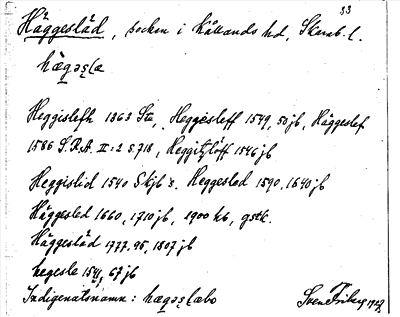 33
Häggesläd, socken i Kållands hd, Skarab. l.
hægəslæ
Heggislefh 1363 Sta, Heggesleff 1549, 50 jb, Häggeslef
1586 S.R.A. II:2 s 718, Heggitzlöff 1546 jb
Heggislid 1540 Skjb 8. Heggeslad 1590, 1640 jb
Häggesled 1660, 1710 jb, 1900 kb, gstk.
Häggesläd 1777, 95, 1807 jb
hegesle 1541, 67 jb
Indigenatsnamn: hægəslæbo
Sven Friberg